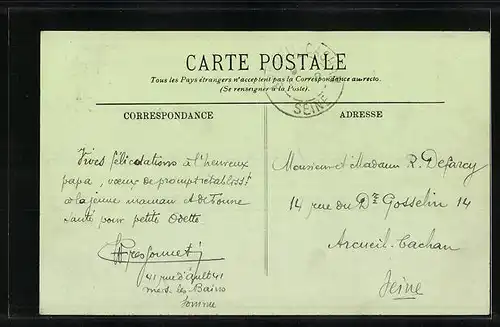 CARTE POSTALE
Tous les Pays étrangers n'acceptent pas la Correspondance au recto.
(Se renseigner à la Poste).
SEINE
CORRESPONDANCE
Vives félicitations à l'heureux
papa, vœux de prompt rétablisst
à la jeune maman et de bonne
santé pour petite Odette
41 rue d'ault 41
mers les Bains
Somme
ADRESSE
Monsieur et Madame R. Defarcy
14 rue du Dr Gosselin 14
Arcueil-Cachan
Seine